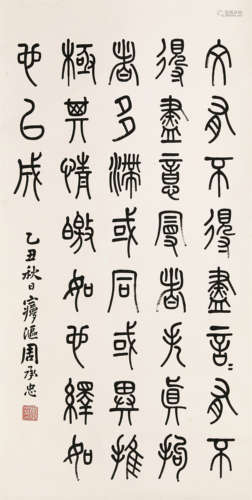 文有不得盡言=有不
得盡意曼者失真拘
者多滯或同或異推
極其情皦如也繹如
也以成
乙丑秋日漚周承忠